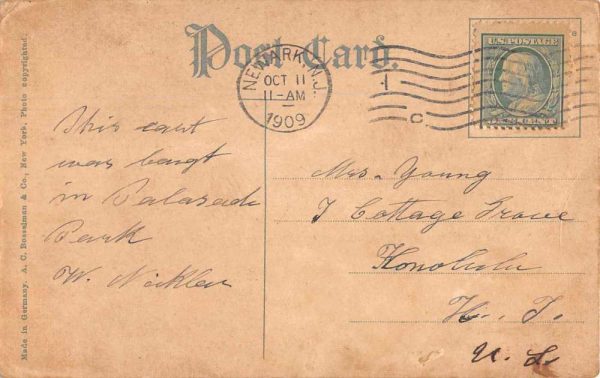 Post Card.
NEWARK, N.J.
OCT 11
11-AM
1909
C
U.S. POSTAGE
This cart
was baugt
in Palasade
Park
W. Nickler
Mrs. Young
7 Cottage Grove
Honolulu
H. T.
U. S.
Made in Germany. A. C. Bosselman & Co., New York. Photo copyrighted.